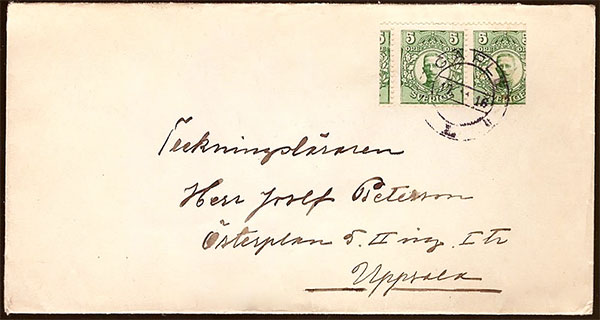 5 5 5
ÖRE ÖRE
SVERIGE
GÄVLE
16
Teckningsläraren
Herr Josef Peterson
Österplan 5. II ing. I tr
Uppsala